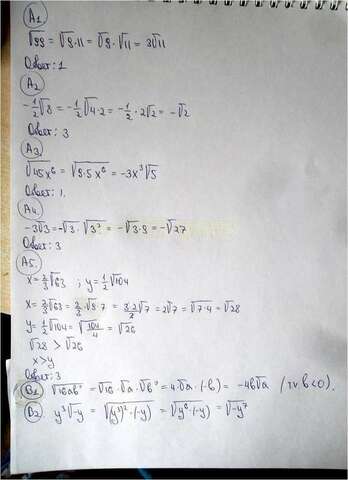 A1
√99 = √9·11 = √9 · √11 = 3√11
Ответ: 1
A2
-1/2√8 = -1/2√4·2 = -1/2 · 2√2 = -√2
Ответ: 3
A3
√45x⁶ = √9·5x⁶ = -3x³√5
Ответ: 1.
A4
-3√3 = -√3 · √3² = -√3·9 = -√27
Ответ: 3
A5.
x = 2/3√63 ; y = 1/2√104
x = 2/3√63 = 2/3 · √9·7 = 3·2/3√7 = 2√7 = √7·4 = √28
y = 1/2√104 = √104/4 = √26
√28 > √26
x > y
Ответ: 3
B1 √16ab² = √16 · √a · √b² = 4·√a · (-b) = -4b√a (т.к b<0).
B2 y³√-y = √(y³)²·(-y) = √y⁶·(-y) = √-y⁷